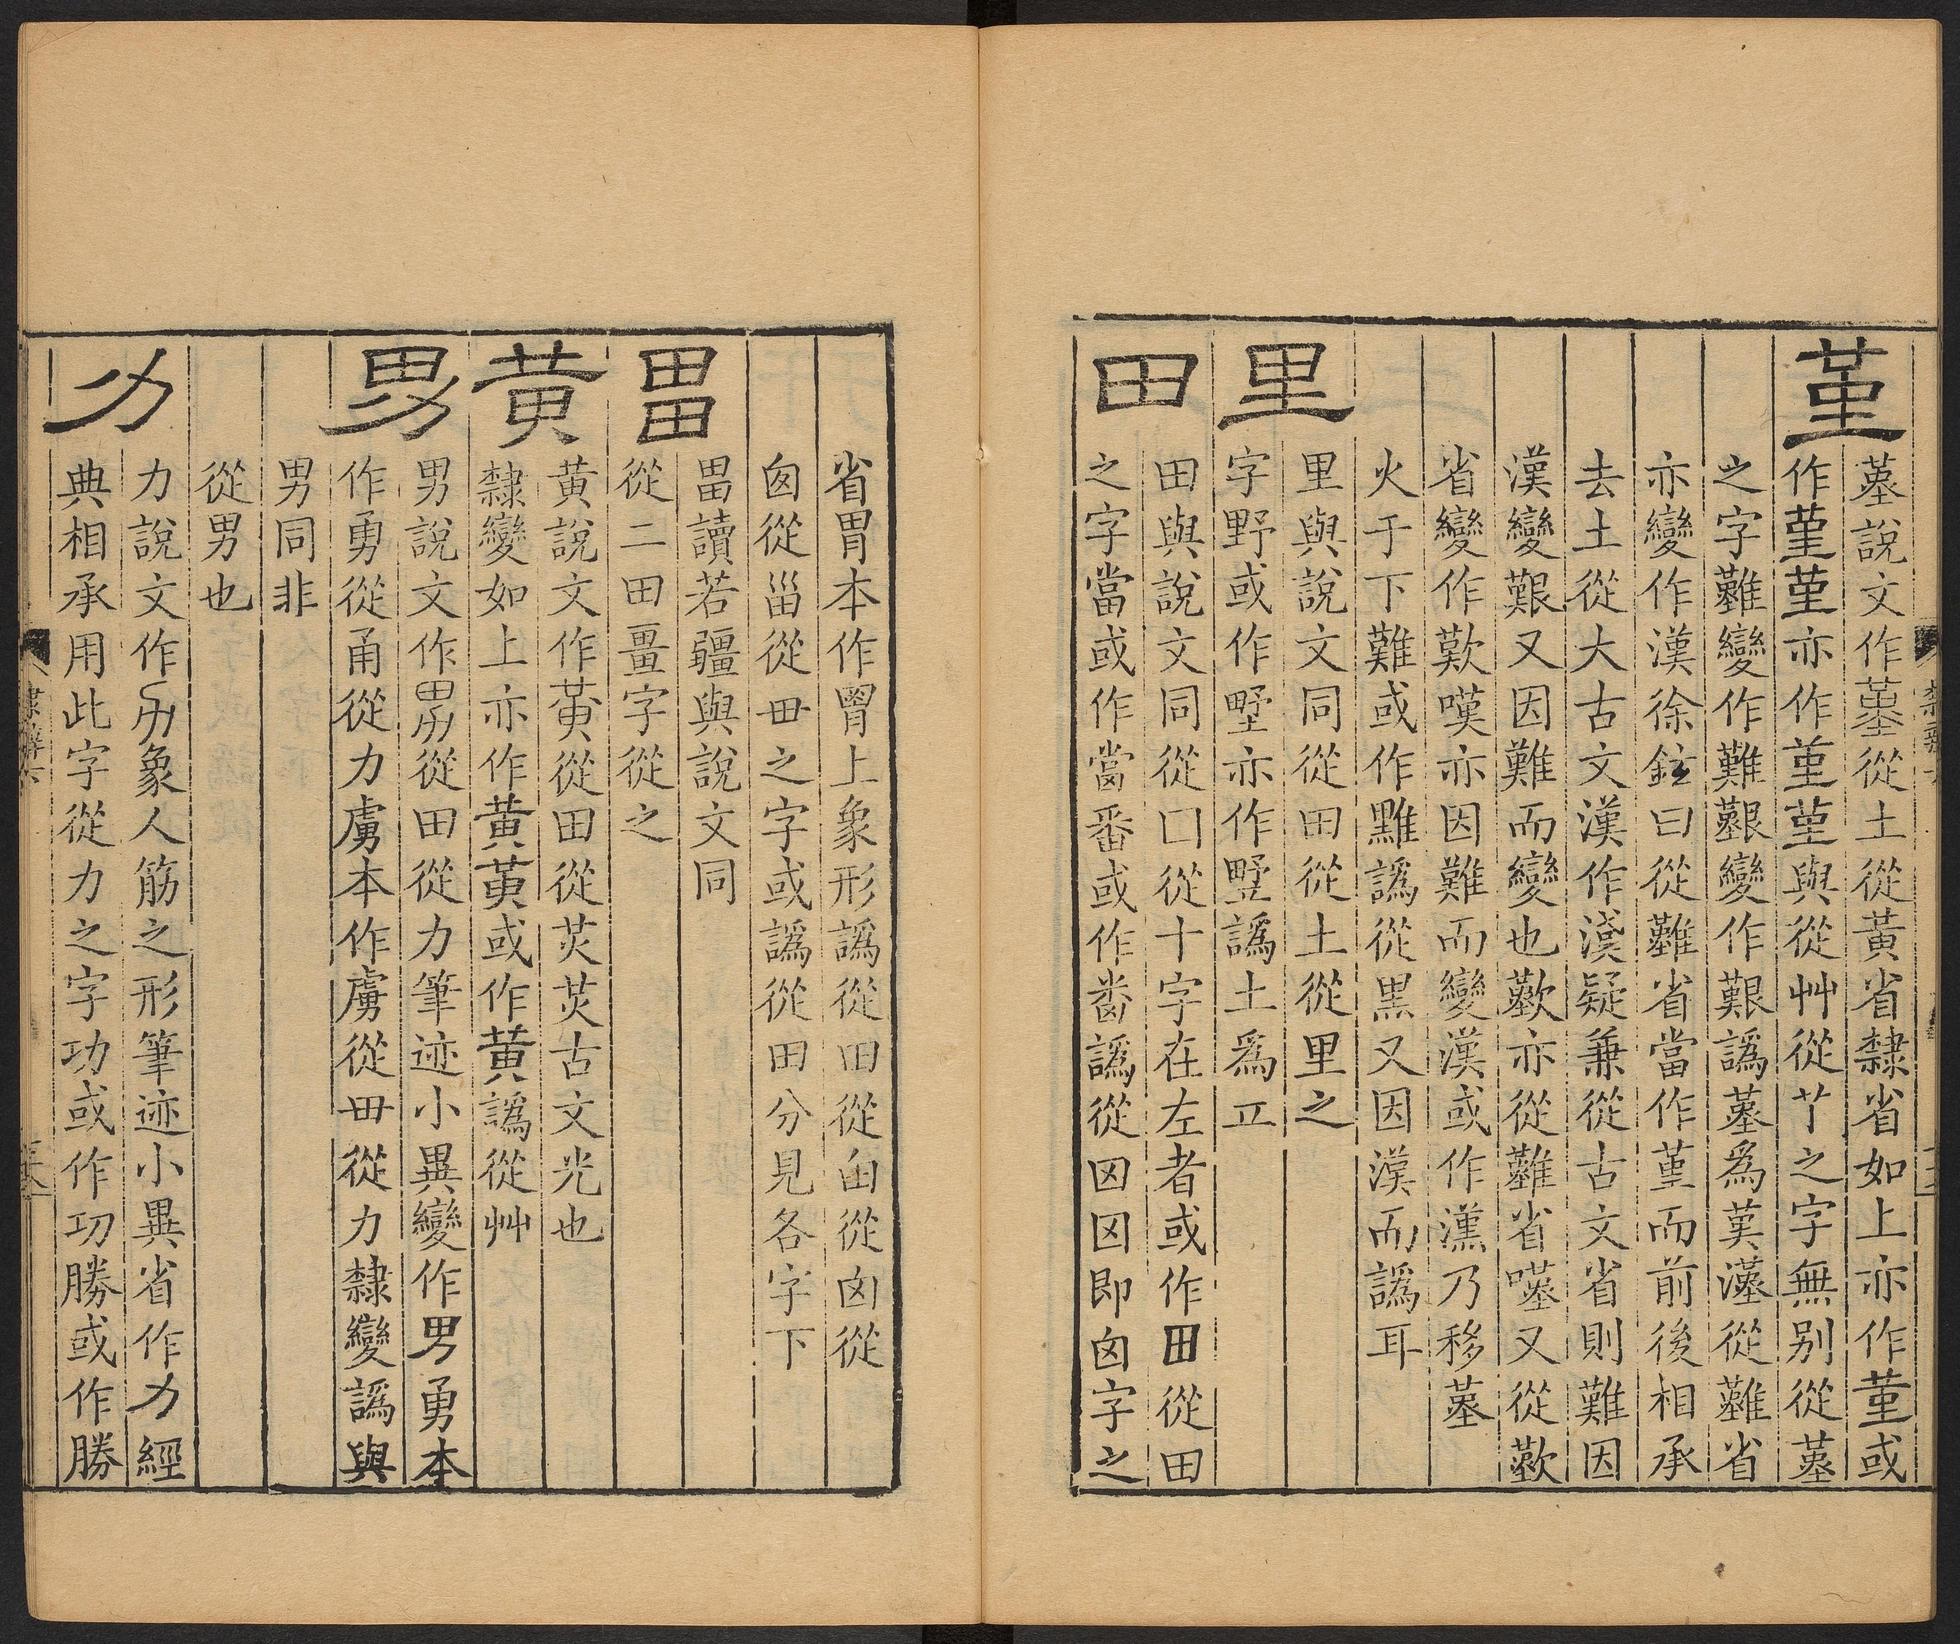 堇
墓說文作墓從土從黃省隸省如上亦作堇或
作堇堇亦作堇堇與從艸從丫之字無別從墓
之字難變作難艱變作艱譌墓為莫漢從難省
亦變作漢徐鉉曰從難省當作堇而前後相承
去土從大古文漢作㵄疑兼從古文省則難因
漢變艱又因難而變也歎亦從難省嘆又從歎
省變作歎嘆亦因難而變漢或作漢乃移墓
火于下難或作難譌從黑又因漢而譌耳
里
里與說文同從田從土從里之
字野或作野亦作墅譌土爲工
田
田與說文同從囗從十字在左者或作田從田
之字當或作當番或作番譌從囟囟即囱字之
省胃本作胃上象形譌從田從由從囟從
囟從甾從毌之字或譌從田分見各字下
畕
畕讀若疆與說文同
從二田畺字從之
黃
黃說文作黃從田從炗炗古文光也
隸變如上亦作黃黃或作黃譌從艸
男
男說文作男從田從力筆迹小異變作男勇本
作勇從甬從力虜本作虜從毌從力隸變譌與
男同非
從男也
力
力說文作力象人筋之形筆迹小異省作力經
典相承用此字從力之字功或作功勝或作勝